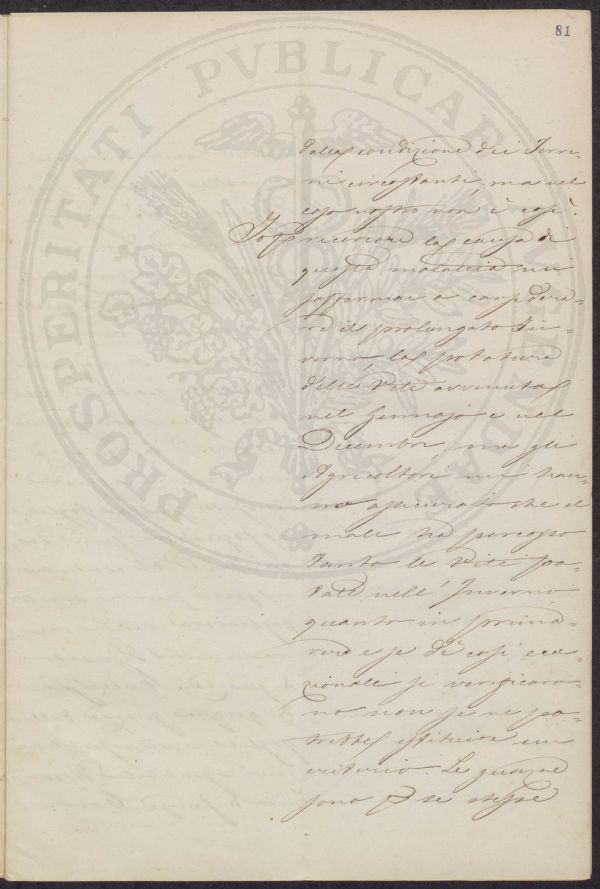 81
PROSPERITATI PVBLICAE AVGENDAE
dalla condizione dei Terre-
ni circostanti, ma nel
caso nostro non è così.
Io per ricercare la causa di
questa malattia mi
soffermai a considera-
re il prolungato In-
verno, la potatura
delle Viti avvenuta
nel Gennajo e nel
Dicembre, ma gli
Agricoltori mi han-
no assicurato che il
male ha percosso
tanto le viti po-
tate nell'Inverno
quanto in prima-
vera e se de' casi ecce-
zionali si verificaro-
no non se ne po-
trebbe istituire un
criterio. Le gemme
sono per se stesse